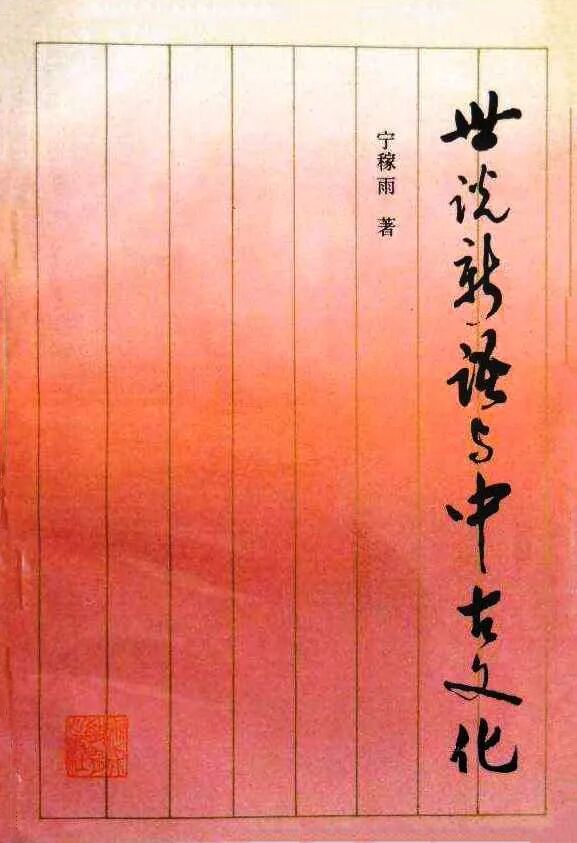 世说新语与中古文化
宁稼雨 著